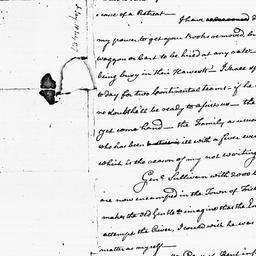 case of a Retreat
I have
my power to get your Books removed bu
waggon or Cart to be hired at any rate
being busy in their Harvest. I shall ap
to day for two Continental teams – if he
no doubt he'll be ready to assist
get come hand the Family as usua
who has been ill with a fever eve
which is the reason of my not writing
Genl. Sullivan with 2000
are now encamped in the Town of Fish
makes the Old Gentle to imagine that the En
attempt the River, I could wish he was
matter as myself